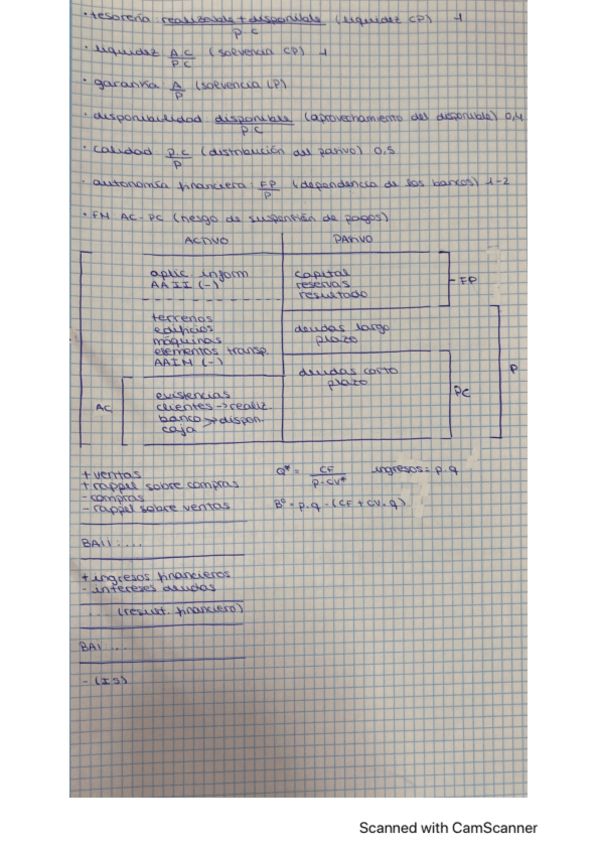 · tesorería realizable + disponible (liquidez CP) 1
PC
· liquidez AC (solvencia CP) 1
PC
· garantía A (solvencia LP)
P
· disponibilidad disponible (aprovechamiento del disponible) 0,4
PC
· calidad PC (distribución del pasivo) 0,5
P
· autonomía financiera FP (dependencia de los bancos) 1-2
P
· FM AC-PC (riesgo de suspensión de pagos)
ACTIVO PASIVO
aplic. inform capital
AAII (-) reservas
resultado
FP
terrenos
edificios deudas largo
máquinas plazo
elementos transp.
AAIM (-) deudas corto
plazo
P
existencias
AC clientes → realiz. PC
banco → dispon.
caja
+ ventas Q* = CF ingresos = p.q
+ rappel sobre compras p-cv*
- compras
- rappel sobre ventas Bº = p.q - (CF + CV.q)
BAII ....
+ ingresos financieros
- intereses deudas
... (result. financiero)
BAI ...
- (IS)
Scanned with CamScanner